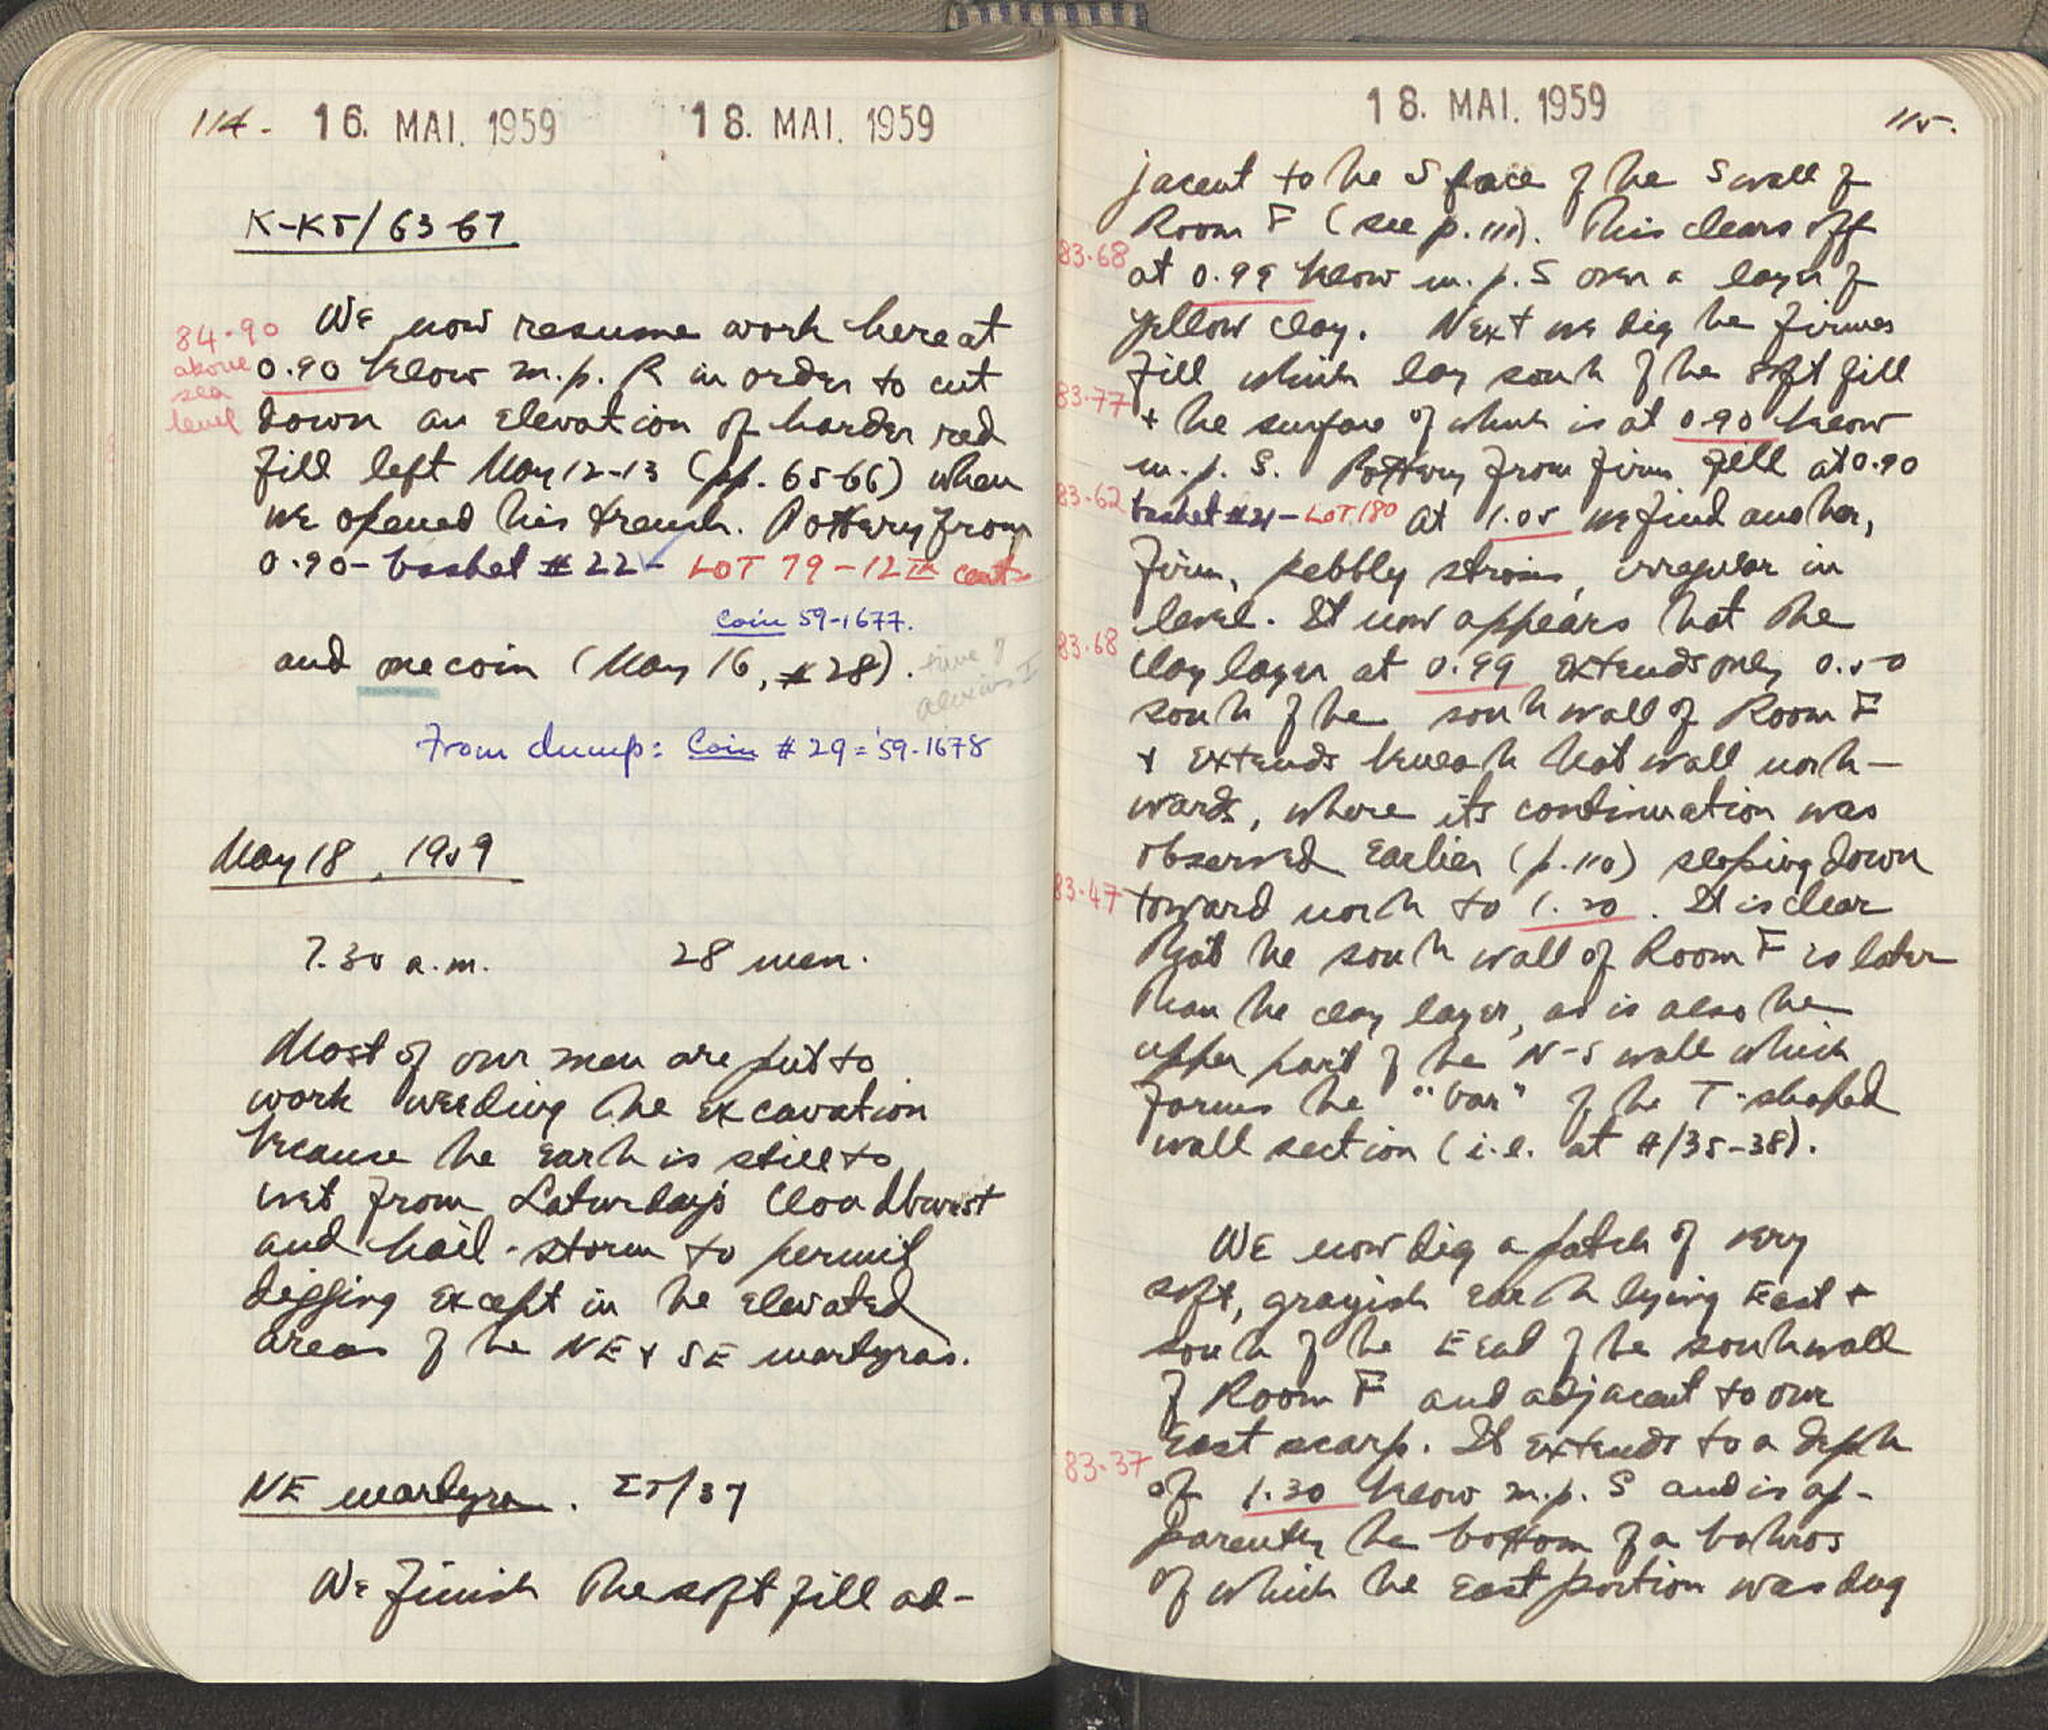 114. 16. MAI. 1959 18. MAI. 1959
K-K5/63-67
84.90 above sea level
We now resume work here at
0.90 below m.p. R in order to cut
down an elevation of harder red
fill left May 12-13 (pp. 65-66) when
we opened this trench. Pottery from
0.90 - basket #22 - LOT 79 - 12th cent
coin 59-1677.
and one coin (May 16, #28).
Alexius I
From dump: Coin #29 = '59-1678
May 18, 1959
7.30 a.m. 28 men.
Most of our men are put to
work weeding the excavation
because the earth is still to
wet from Saturday's cloudburst
and hail-storm to permit
digging except in the elevated
areas of the NE + SE martyras.
NE martyra. I5/37
We finish the soft fill ad-
18. MAI. 1959 115.
jacent to the S face of the S wall of
Room F (see p. 111). This clears off
83.68 at 0.99 below m.p. S over a layer of
yellow clay. Next we dig the firmer
fill which lay south of the soft fill
83.77 + the surface of which is at 0.90 below
m.p. S. Pottery from firm fill at 0.90
83.62 basket #21 - LOT 180 At 1.05 we find another,
firm, pebbly strosis, irregular in
level. It now appears that the
83.68 clay layer at 0.99 extends only 0.50
south of the south wall of Room F
+ extends beneath that wall north-
wards, where its continuation was
observed earlier (p. 110) sloping down
83.47 toward north to 1.20. It is clear
that the south wall of Room F is later
than the clay layer, as is also the
upper part of the N-S wall which
forms the "bar" of the T-shaped
wall section (i.e. at H/35-38).
We now dig a patch of very
soft, grayish earth lying East +
south of the E end of the south wall
of Room F and adjacent to our
East scarp. It extends to a depth
83.37 of 1.30 below m.p. S and is ap-
parently the bottom of a bothros
of which the East portion was dug